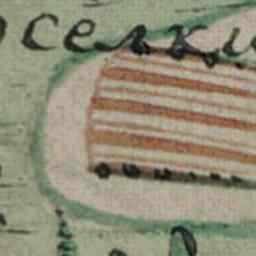 оселки